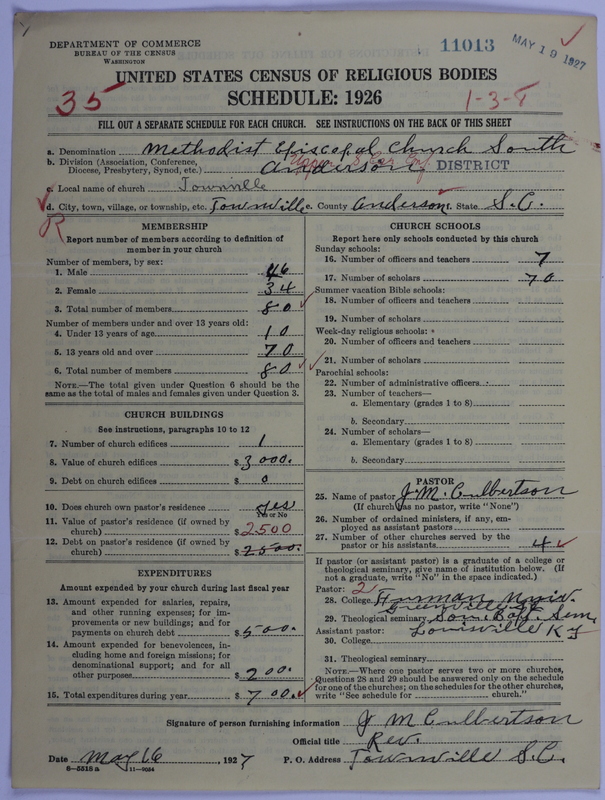 DEPARTMENT OF COMMERCE
BUREAU OF THE CENSUS
WASHINGTON
11013
MAY 19 1927
UNITED STATES CENSUS OF RELIGIOUS BODIES
SCHEDULE: 1926
35
1-3-8
FILL OUT A SEPARATE SCHEDULE FOR EACH CHURCH. SEE INSTRUCTIONS ON THE BACK OF THIS SHEET
a. Denomination Methodist Episcopal Church South
b. Division (Association, Conference, Diocese, Presbytery, Synod, etc.) Anderson DISTRICT
Upper S. Car. Conf.
c. Local name of church Townville
d. City, town, village, or township, etc. Townville e. County Anderson f. State S.C.
R
MEMBERSHIP
Report number of members according to definition of
member in your church
Number of members, by sex:
1. Male 46
2. Female 34
3. Total number of members 80
Number of members under and over 13 years old:
4. Under 13 years of age 10
5. 13 years old and over 70
6. Total number of members 80
NOTE.—The total given under Question 6 should be the
same as the total of males and females given under Question 3.
CHURCH BUILDINGS
See instructions, paragraphs 10 to 12
7. Number of church edifices 1
8. Value of church edifices $3000.
9. Debt on church edifices $ 0
10. Does church own pastor's residence yes
Yes or No
11. Value of pastor's residence (if owned by
church) $2500
12. Debt on pastor's residence (if owned by
church) $2500.
EXPENDITURES
Amount expended by your church during last fiscal year
13. Amount expended for salaries, repairs,
and other running expenses; for im-
provements or new buildings; and for
payments on church debt $500.
14. Amount expended for benevolences, in-
cluding home and foreign missions; for
denominational support; and for all
other purposes $200.
15. Total expenditures during year $700.
CHURCH SCHOOLS
Report here only schools conducted by this church
Sunday schools:
16. Number of officers and teachers 7
17. Number of scholars 70
Summer vacation Bible schools:
18. Number of officers and teachers
19. Number of scholars
Week-day religious schools:
20. Number of officers and teachers
21. Number of scholars
Parochial schools:
22. Number of administrative officers
23. Number of teachers—
a. Elementary (grades 1 to 8)
b. Secondary
24. Number of scholars—
a. Elementary (grades 1 to 8)
b. Secondary
PASTOR
25. Name of pastor J. M. Culbertson
(If church has no pastor, write "None")
26. Number of ordained ministers, if any, em-
ployed as assistant pastors
27. Number of other churches served by the
pastor or his assistants 4
If pastor (or assistant pastor) is a graduate of a college or
theological seminary, give name of institution below. (If
not a graduate, write "No" in the space indicated.)
Pastor: 2
28. College Furman Univ.
Greenville SC
29. Theological seminary Sou. Bap. Sem.
Assistant pastor: Louisville Ky
30. College
31. Theological seminary
NOTE.—Where one pastor serves two or more churches,
Questions 28 and 29 should be answered only on the schedule
for one of the churches; on the schedules for the other churches,
write "See schedule for church."
Signature of person furnishing information J M Culbertson
Official title Rev.
Date May 16, 1927 P. O. Address Townville S.C.
6—5518 a 11—9054